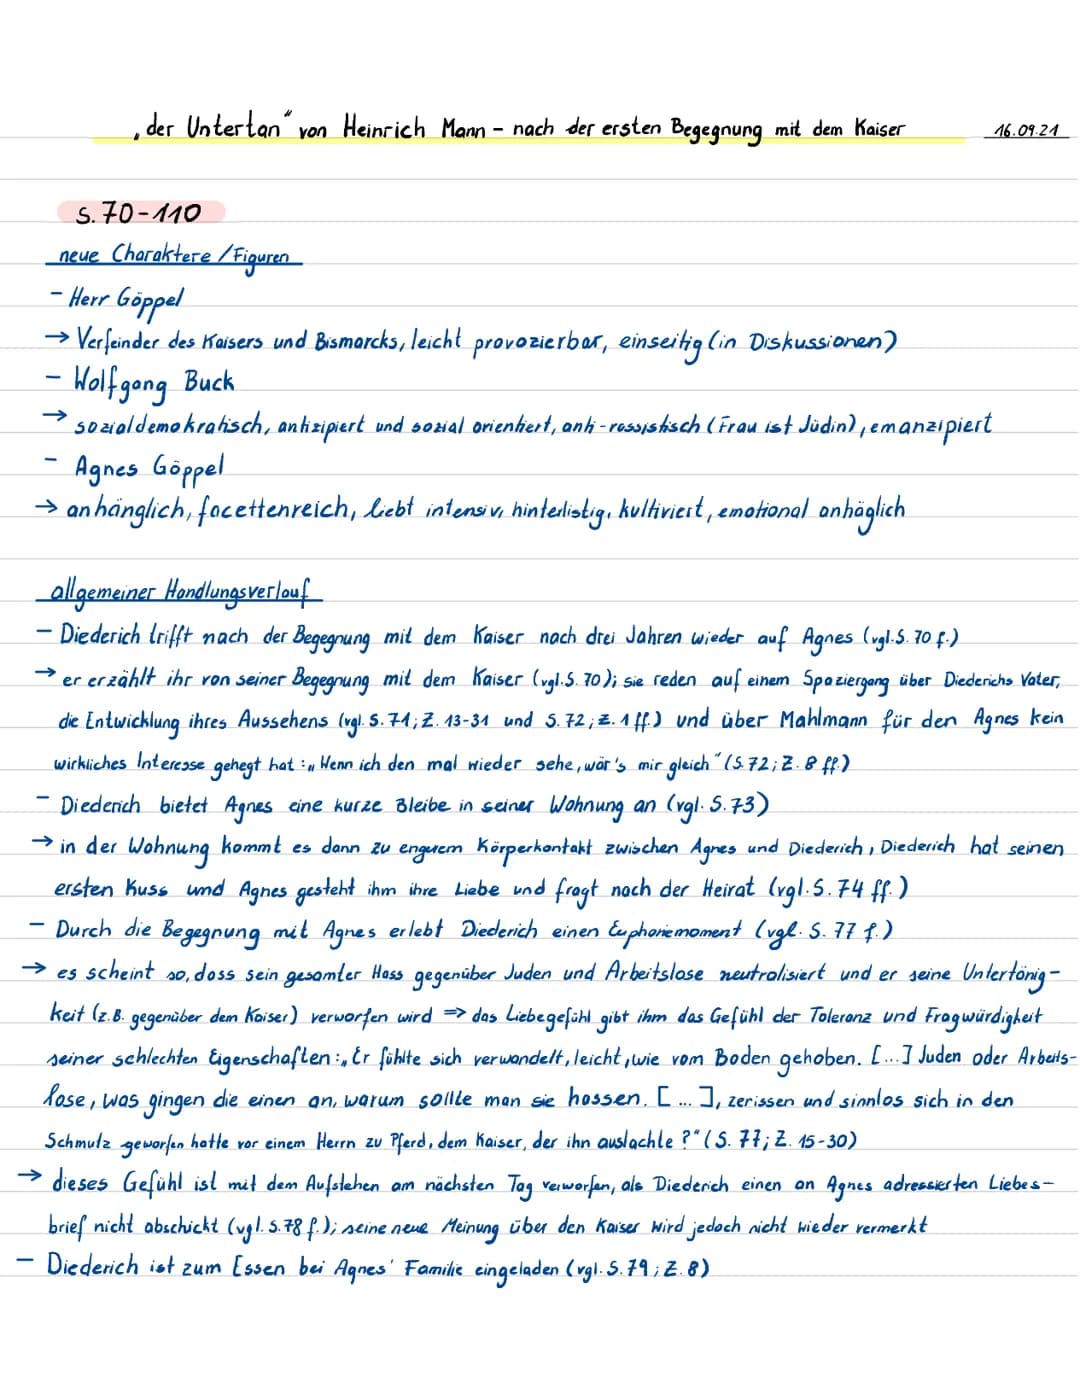 „der Untertan“ von Heinrich Mann - nach der ersten Begegnung mit dem Kaiser 16.09.21
S. 70-110
neue Charaktere/Figuren
- Herr Göppel
→ Verfeinder des Kaisers und Bismarcks, leicht provozierbar, einseitig (in Diskussionen)
- Wolfgang Buck
→ sozialdemokratisch, antizipiert und sozial orientiert, anti-rassistisch (Frau ist Jüdin), emanzipiert
- Agnes Göppel
→ anhänglich, facettenreich, liebt intensiv, hinterlistig, kultiviert, emotional anhäglich
allgemeiner Handlungsverlauf
- Diederich trifft nach der Begegnung mit dem Kaiser nach drei Jahren wieder auf Agnes (vgl. S. 70 f.)
→ er erzählt ihr von seiner Begegnung mit dem Kaiser (vgl. S. 70); sie reden auf einem Spaziergang über Diederichs Vater,
die Entwicklung ihres Aussehens (vgl. S. 71; Z. 13-31 und S. 72; Z. 1 ff.) und über Mahlmann für den Agnes kein
wirkliches Interesse gehegt hat: „Wenn ich den mal wieder sehe, wär's mir gleich“ (S. 72; Z. 8 ff.)
- Diederich bietet Agnes eine kurze Bleibe in seiner Wohnung an (vgl. S. 73)
→ in der Wohnung kommt es dann zu engerem Körperkontakt zwischen Agnes und Diederich, Diederich hat seinen
ersten Kuss und Agnes gesteht ihm ihre Liebe und fragt nach der Heirat (vgl. S. 74 ff.)
- Durch die Begegnung mit Agnes erlebt Diederich einen Euphoriemoment (vgl. S. 77 f.)
→ es scheint so, dass sein gesamter Hass gegenüber Juden und Arbeitslose neutralisiert und er seine Untertänig-
keit (z.B. gegenüber dem Kaiser) verworfen wird => das Liebegefühl gibt ihm das Gefühl der Toleranz und Fragwürdigheit
seiner schlechten Eigenschaften: „Er fühlte sich verwandelt, leicht, wie vom Boden gehoben. [...] Juden oder Arbeits-
lose, was gingen die einen an, warum sollte man sie hassen. [...], zerissen und sinnlos sich in den
Schmutz geworfen hatte vor einem Herrn zu Pferd, dem Kaiser, der ihn auslachte?“ (S. 77; Z. 15-30)
→ dieses Gefühl ist mit dem Aufstehen am nächsten Tag verworfen, als Diederich einen an Agnes adressierten Liebes-
brief nicht abschickt (vgl. S. 78 f.); seine neue Meinung über den Kaiser wird jedoch nicht wieder vermerkt
- Diederich ist zum Essen bei Agnes' Familie eingeladen (vgl. S. 79; Z. 8)